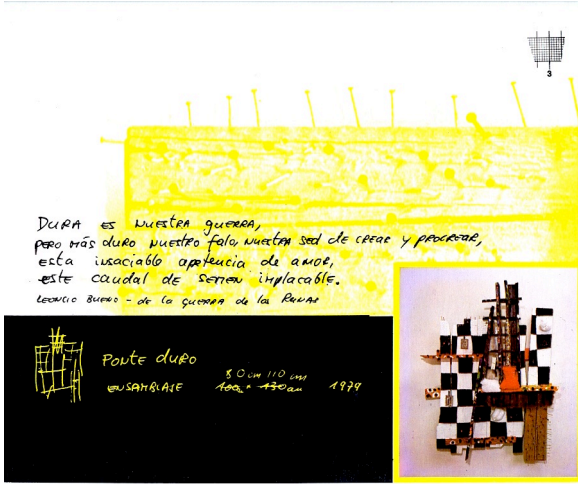 3
DURA ES NUESTRA GUERRA,
PERO MÁS DURO NUESTRO falo, NUESTRA SED de CREAR Y PROCREAR,
ESTA INSACIABLE APETENCIA DE AMOR,
ESTE CAUDAL DE SEMEN IMPLACABLE.
LEONCIO BUENO - DE LA GUERRA de los RUNAS
PONTE DURO
80 cm 110 cm
ENSAMBLAJE 100 x 130 cm 1979